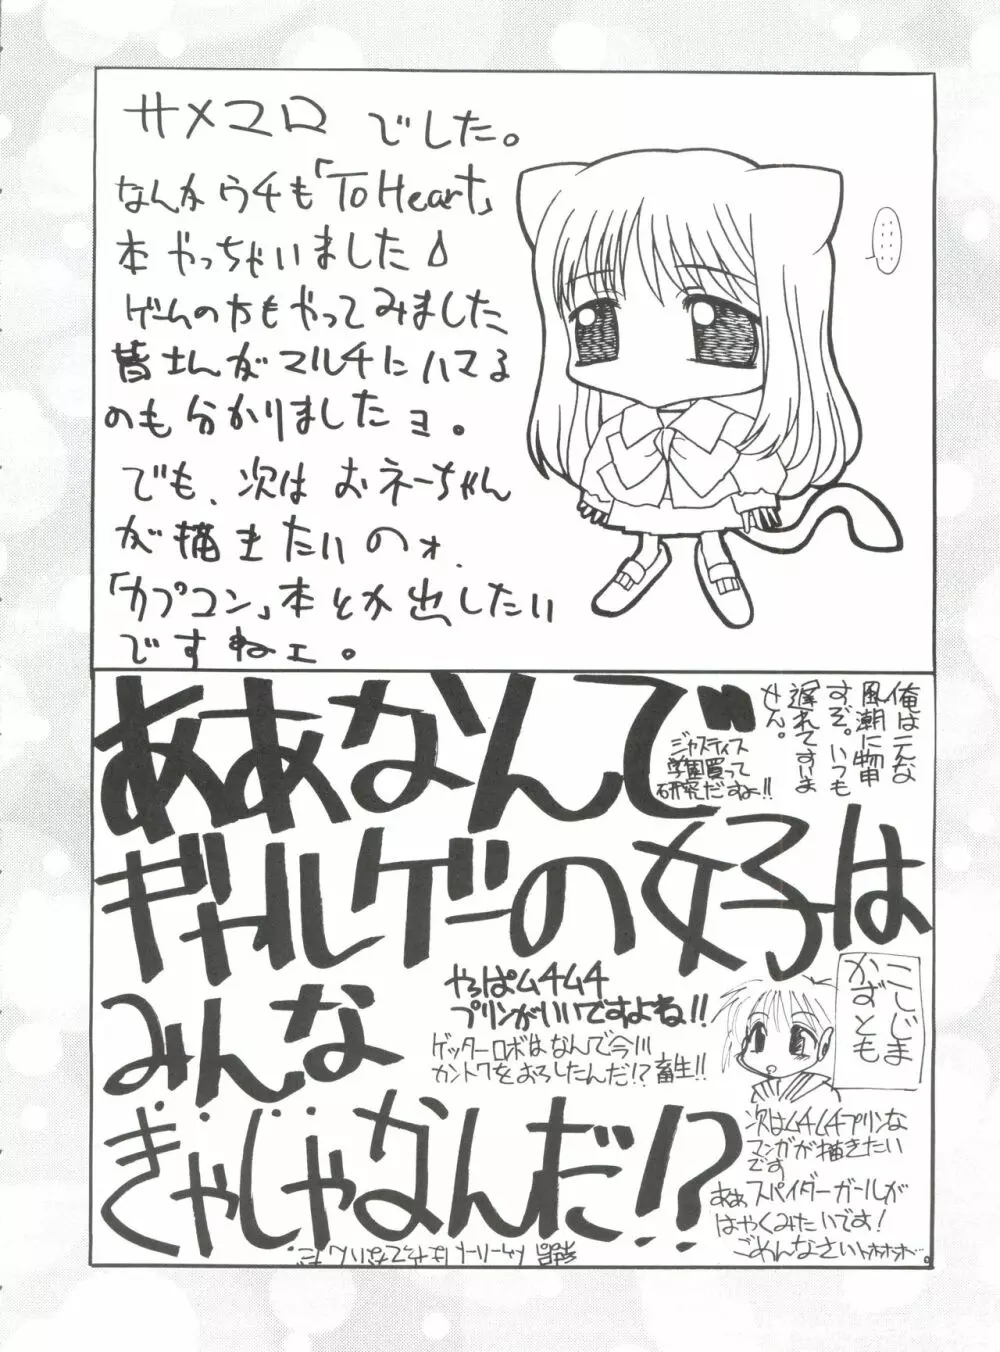 サメマロでした。
なんかウチも「To Heart」
本やっちゃいました
ゲームの方もやってみました
皆さんがマルチにハマる
のも分かりましたヨ。
でも、次はおネーちゃん
が描きたいのォ、
「カプコン」本とか出したい
ですねェ。
……
ああなんで
ギャルゲーの女子は
みんな
きゃしゃなんだ!?
俺はこんな
風潮に物申
すぞ。いつも
遅れてすいま
せん。
ジャスティス
学園買って
研究だすね!!
やっぱムチムチ
プリンがいいですよね!!
ゲッターロボはなんで今川
カントクをおろしたんだ!?畜生!!
こじま
かずとも
次はムチムチプリンな
マンガが描きたい
です
ああスパイダーガールが
はやくみたいです!
ごめんなさいトホホホ…。